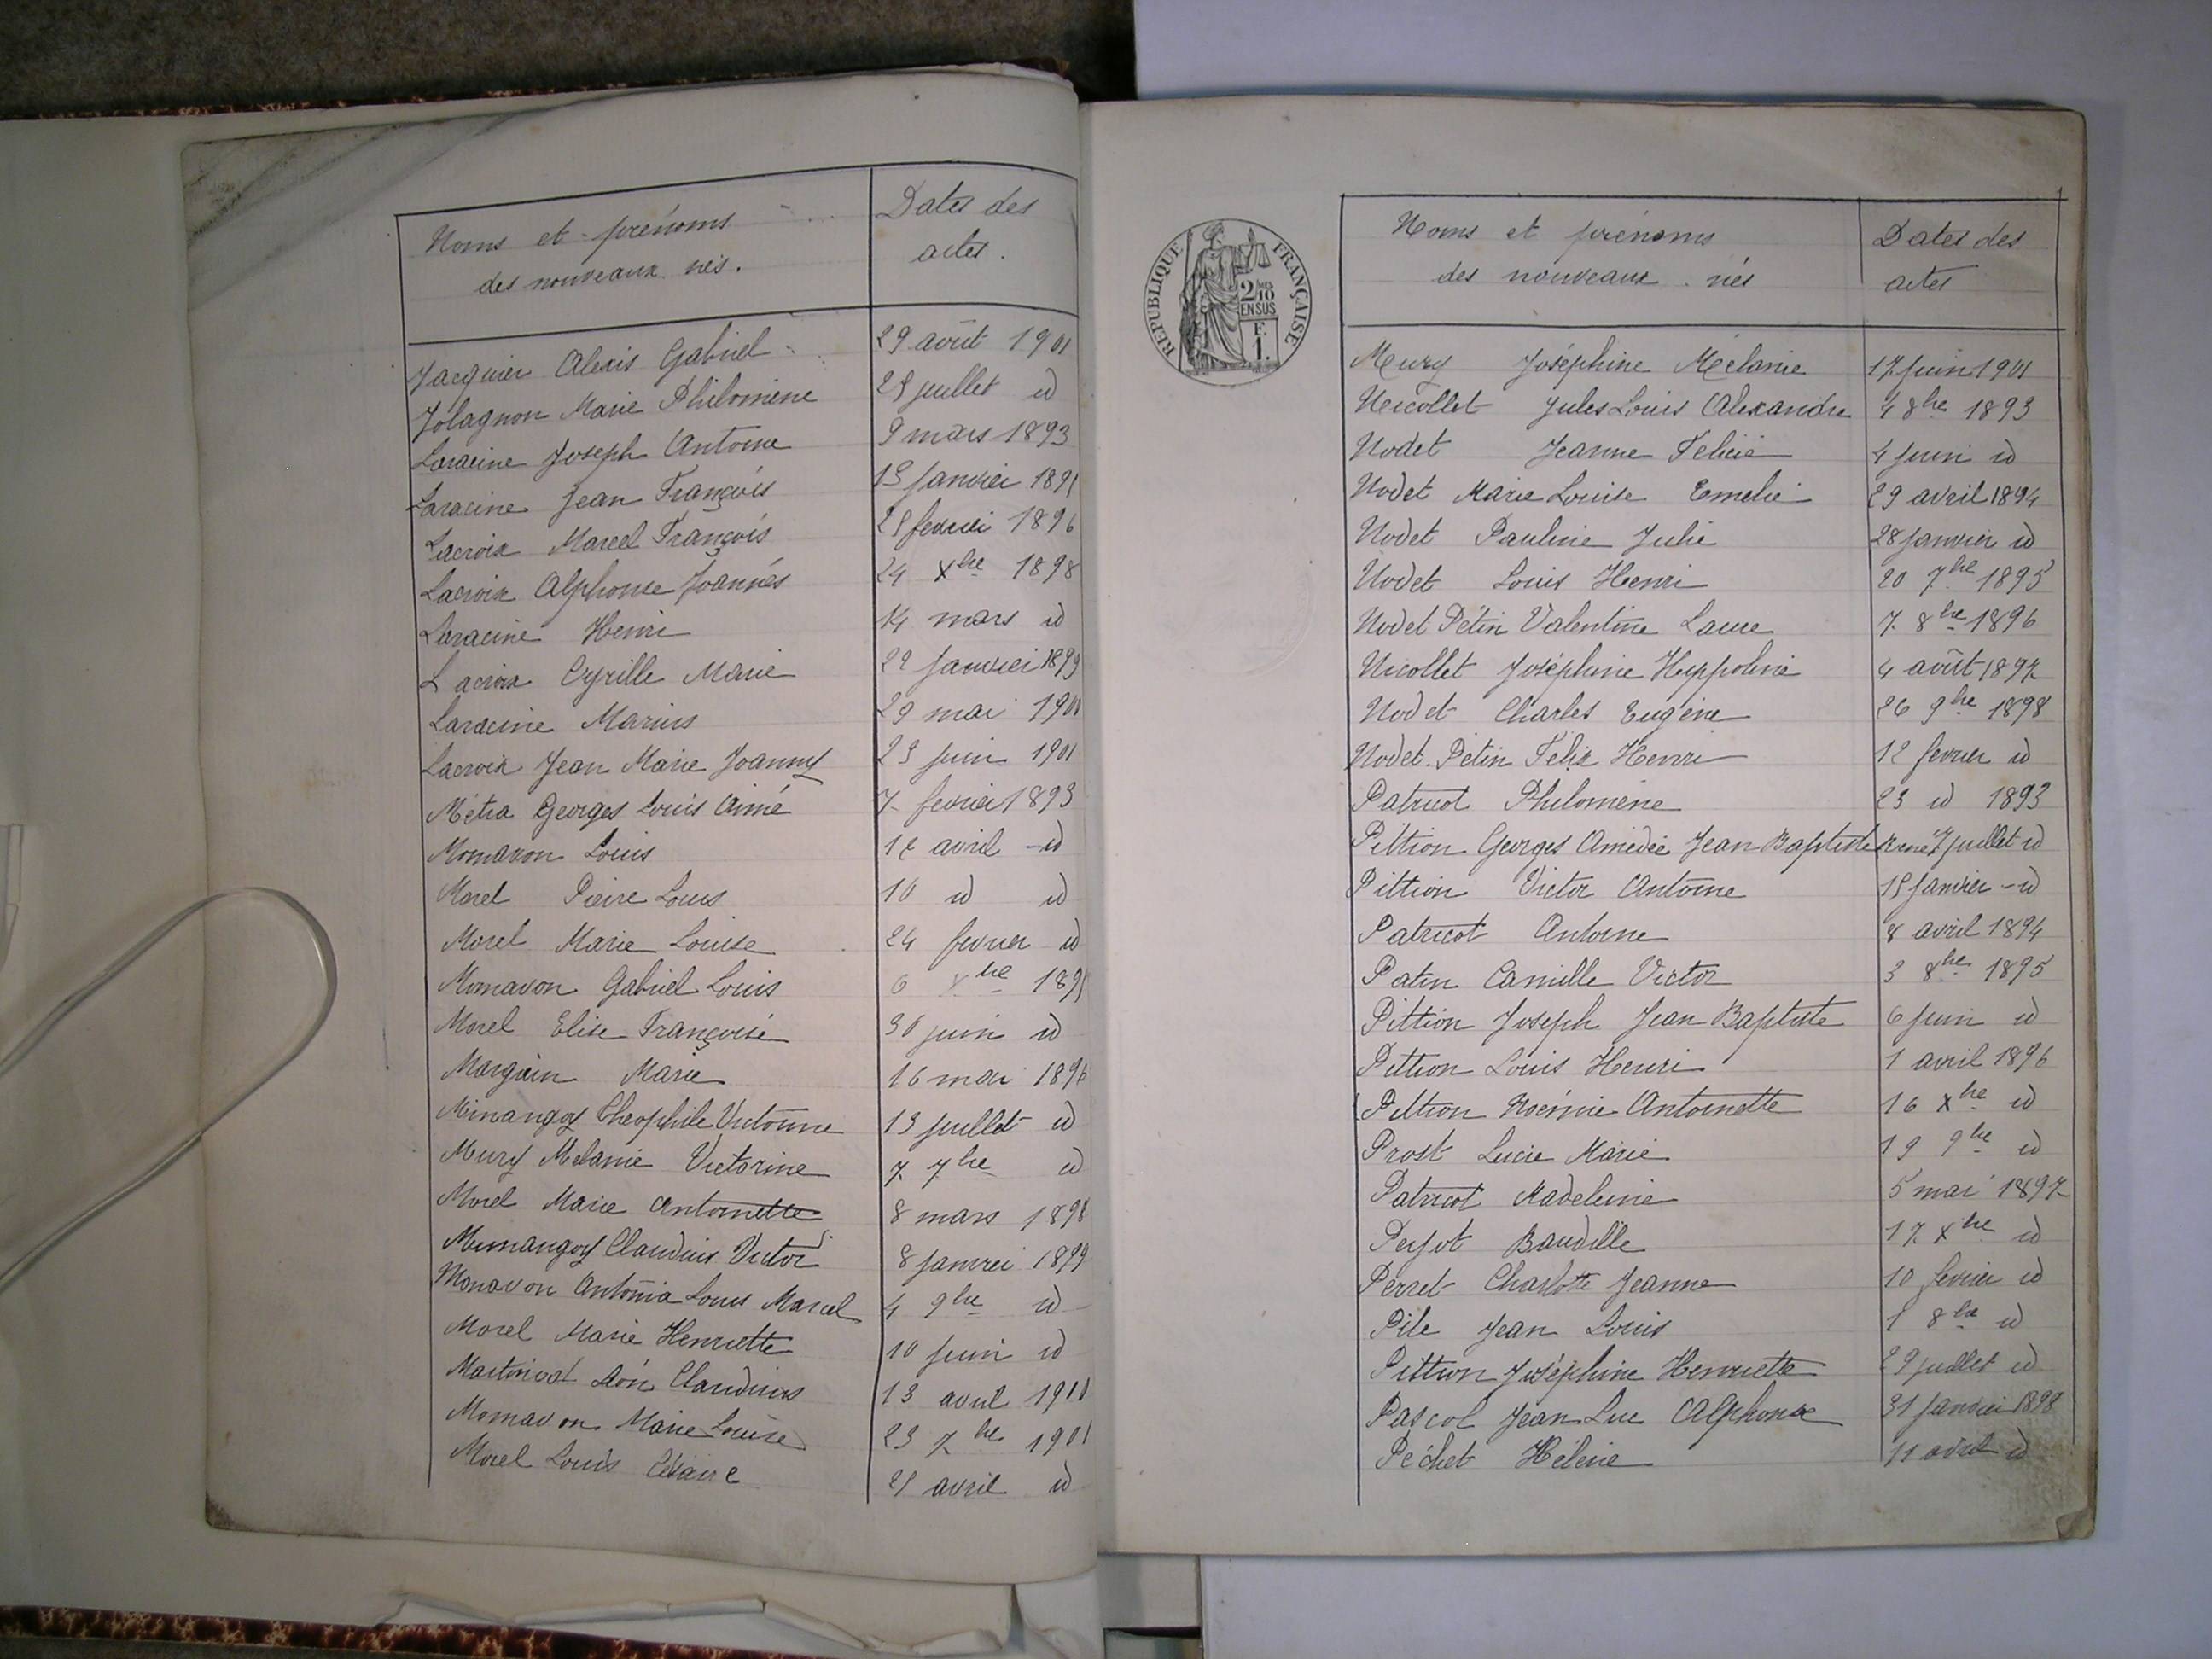 Noms et prénoms
des nouveaux nés.
Dates des
actes.
Jacquier Alexis Gabriel 29 août 1901
Jolagnon Marie Philomène 25 juillet id
Laracine Joseph Antoine 9 mars 1893
Laracine Jean François 13 janvier 1895
Lacroix Marcel François 25 fevrier 1896
Lacroix Alphonse Joannès 24 Xbre 1898
Laracine Henri 14 mars id
Lacroix Cyrille Marie 22 janvier 1899
Laracine Marius 29 mai 1900
Lacroix Jean Marie Joanny 23 juin 1901
Métra Georges Louis Aimé 7 fevrier 1893
Monavon Louis 12 avril id
Morel Pierre Louis 10 id id
Morel Marie Louise 24 fevrier id
Monavon Gabriel Louis 6 Xbre 1895
Morel Elise Françoise 30 juin id
Margain Marie 16 mai 1896
Minangoy Théophile Victorine 13 juillet id
Mury Melanie Victorine 7 7bre id
Morel Marie Antoinette 8 mars 1898
Minangoy Claudius Victor 8 janvier 1899
Monavon Antonia Louis Marcel 4 9bre id
Morel Marie Henriette 10 juin id
Léon Claudius 13 avril 1900
Monavon Marie Louise 23 7bre 1901
Morel Louis Césaire 21 avril id
REPUBLIQUE FRANÇAISE
2/10
EN SUS
F.
1.
Noms et prénoms
des nouveaux nés
Dates des
actes
Mury Joséphine Mélanie 17 juin 1901
Nicollet Jules Louis Alexandre 4 8bre 1893
Nodet Jeanne Felicie 4 juin id
Nodet Marie Louise Emelie 29 avril 1894
Nodet Pauline Julie 28 janvier id
Nodet Louis Henri 20 7bre 1895
Nodet Pétin Valentine Laure 7 8bre 1896
Nicollet Joséphine Hyppoline 4 août 1897
Nodet Charles Eugène 26 9bre 1898
Nodet Pétin Félix Henri 12 fevrier id
Patricot Philomène 23 id 1893
Pittion Georges Amédée Jean Baptiste René 7 juillet id
Pittion Victor Antoine 15 janvier id
Patricot Antoine 8 avril 1894
Patin Camille Victor 3 8bre 1895
Pittion Joseph Jean Baptiste 6 juin id
Pittion Louis Henri 1 avril 1896
Pittion Noémie Antoinette 16 Xbre id
Prost Lucie Marie 19 9bre id
Patricot Madeleine 5 mai 1897
Peyot Baudille 17 Xbre id
Perret Charlotte Jeanne 10 fevrier id
Pile Jean Louis 1 8bre id
Pittion Joséphine Henriette 29 juillet id
Pascol Jean Luc Alphonse 31 janvier 1898
Péchet Hélène 11 avril id